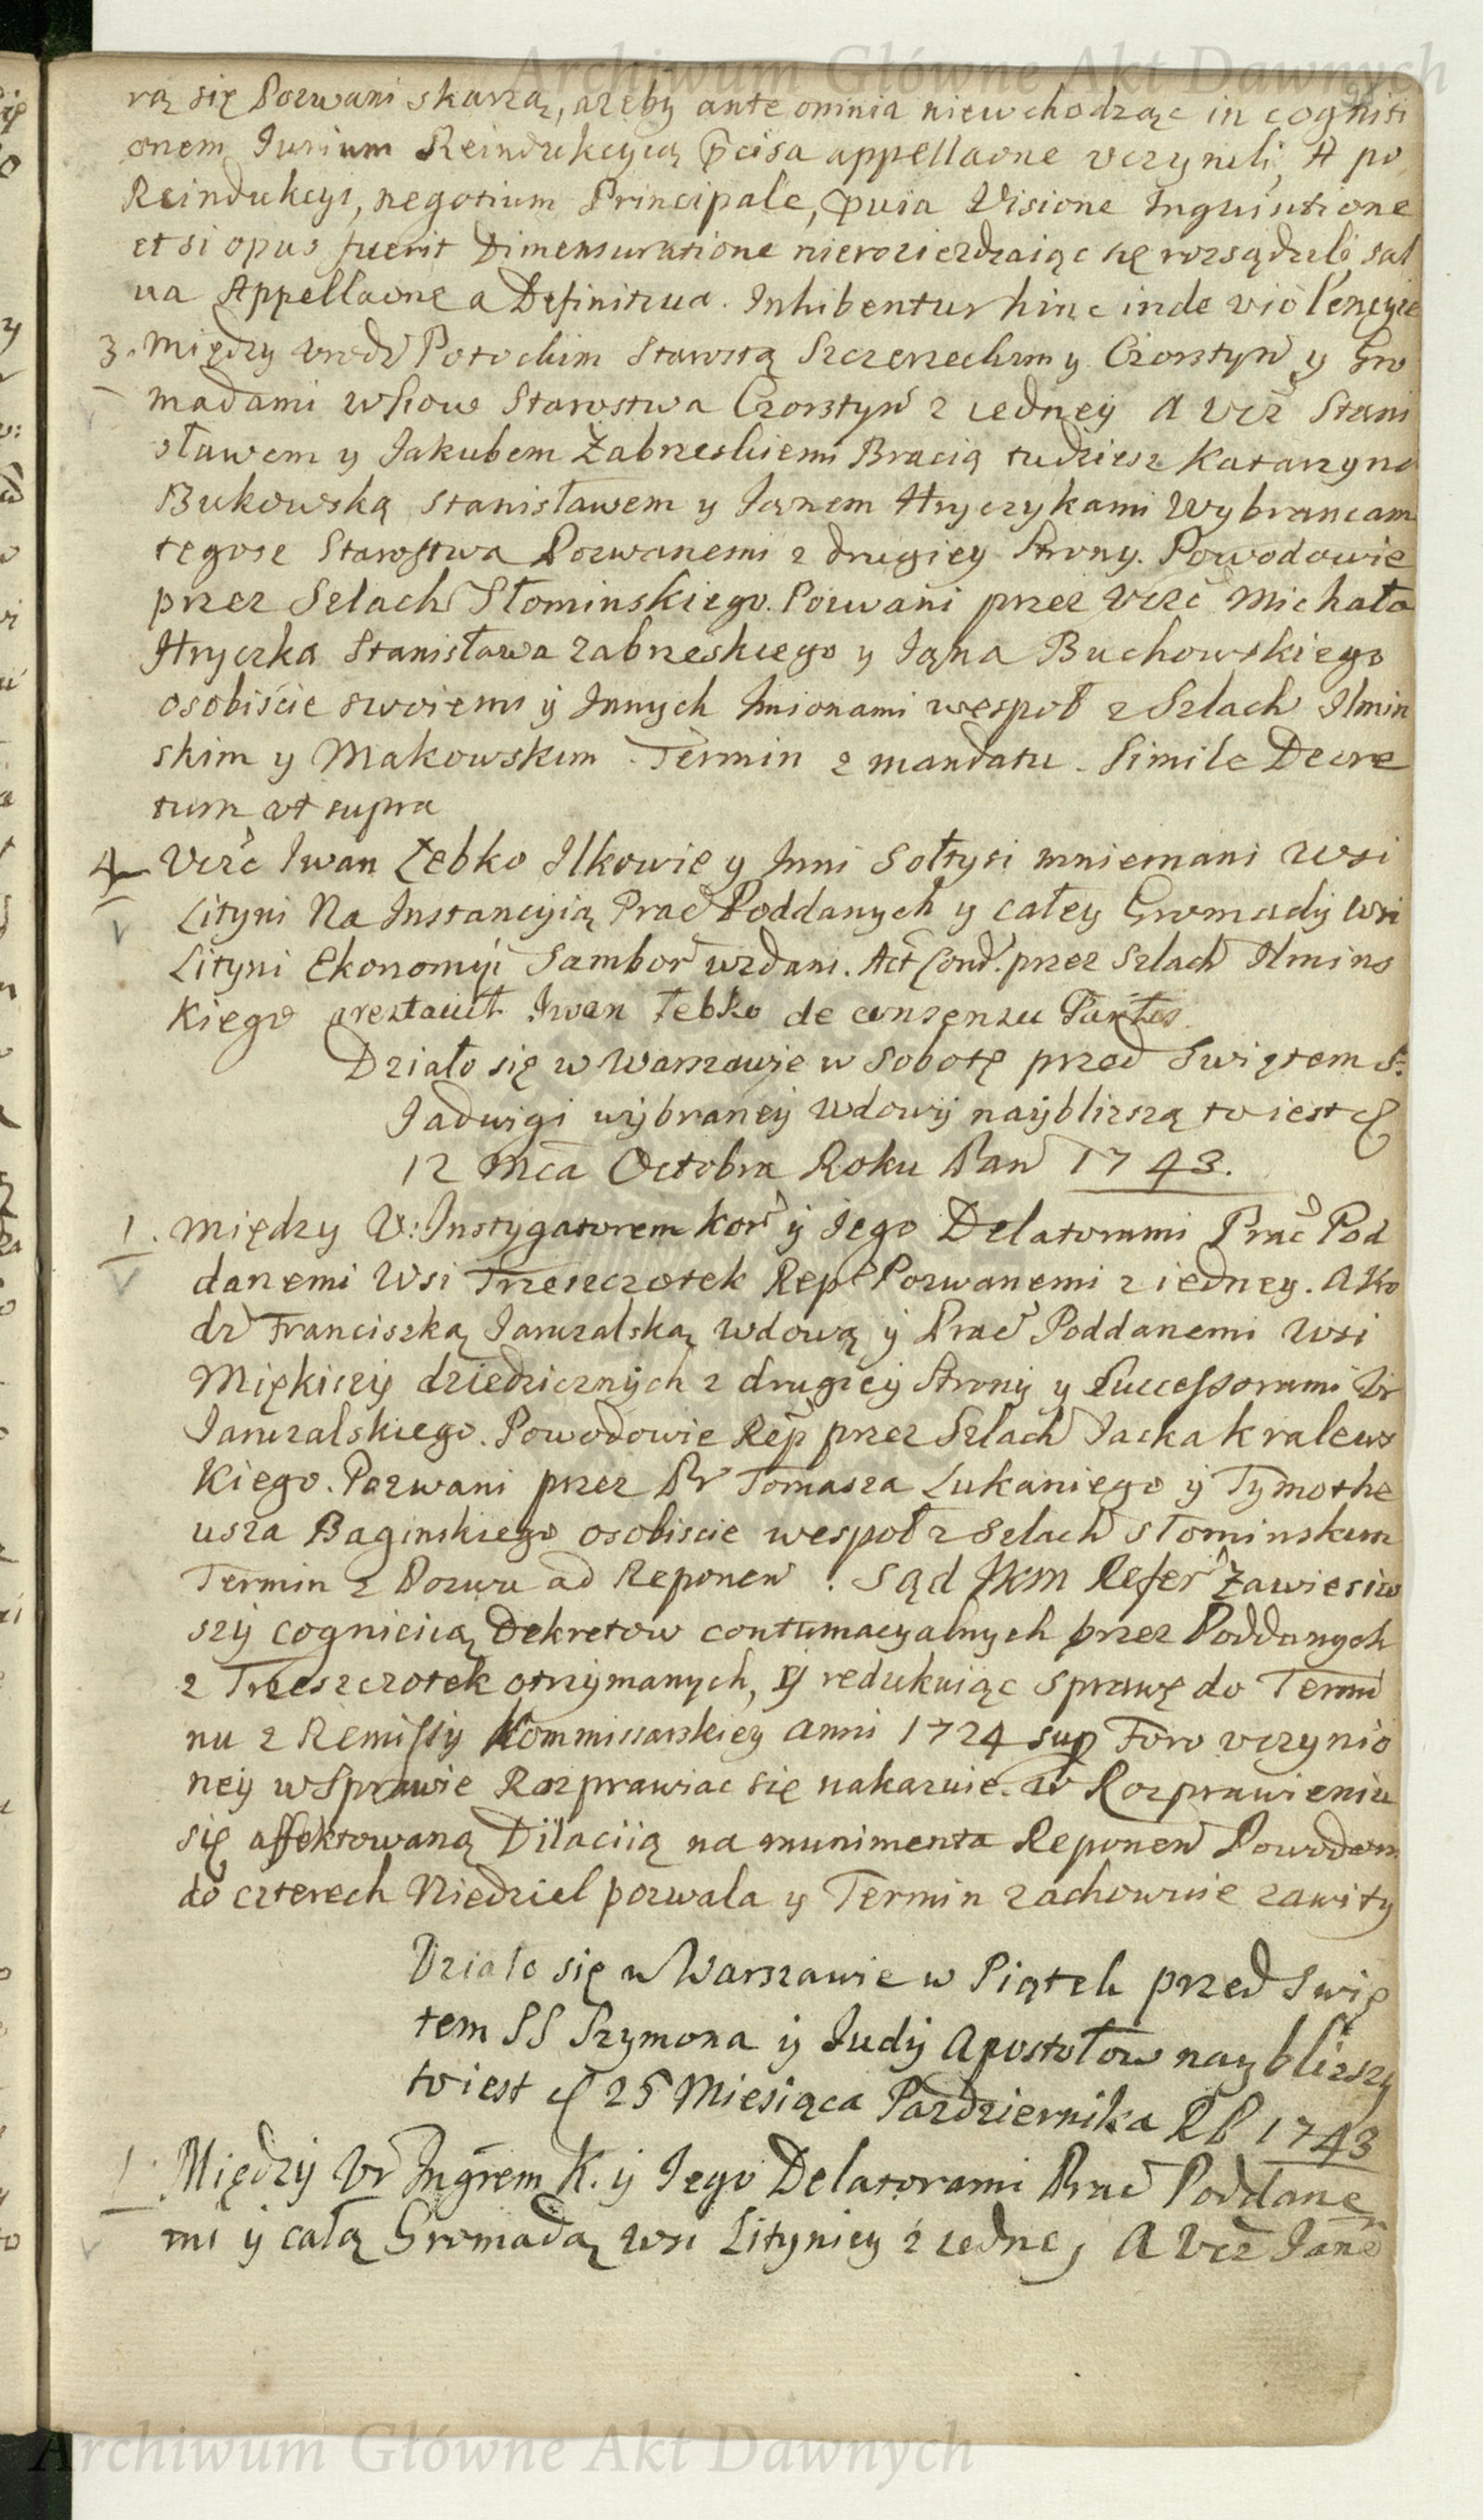 Archiwum Główne Akt Dawnych
rą się Pozwani skarzą, azeby ante omnia niewchodząc in cogniti
onem Jurium Reindukcyią p̄cisa appellaōne vczynili, A po
Reindukcyi, negotium Principale, p̄uia Visione Inquisitione
et si opus fuerit Dimensuratione nieroziezdzaiąc się rozsądzili sal
ua Appellaōne a Definitiua. Inhibentur hinc inde violencyie
3. Między Urodz Potockim Starostą Szczerzeckim y Czorsztyń y Gro
madami wsiow Starostwa Czorsztyń z iedney A Vcz Stani
sławem y Jakubem Zabrzeskiemi Bracią tudziesz Katarzyną
Bukowską Stanisławem y Janem Hryczykami Wybrancam
tegosz Starostwa Pozwanemi z drugiey Strony. Powodowie
przez Szlach Słominskiego. Pozwani przez Vczc Michała
Hryczka Stanisława Zabrzeskiego y Jana Buchowskiego
osobiście swoiemi ÿ Innych Imionami wespoł z Szlach Ilmin
skim y Makowskim. Termin z mandatu. Simile Decre
tum vt supra
4 Vczc Iwan Łebko Ilkowie y Inni Sołtysi mniemani wsi
Lityni Na Instancyią Prac Poddanych y całey Gromady wsi
Lityni Ekonomÿi Sambor wzdani. Act Cond. przez Szlach Ilmins
kiego prestauit Iwan Łebko de consensu Partis
Działo się w Warszawie w Sobotę przed Swiętem S:
Jadwigi wÿbraneÿ wdowÿ naÿblizszą to iest d
12 Mca Octobra Roku Pań 1743.
1. Między V: Instygatorem Kor ÿ Iego Delatorami Prac Pod
danemi Wsi Trzeszczotek Rep Pozwanemi z iedney. A Ro
dz Franciszką Jamzalską wdową ÿ Prac Poddanemi wsi
Miękiszÿ dziedzicznÿch z drugieÿ Stronÿ y Successorami Ur
Jamzalskiego. Powodowie Rep przez Szlach Jacka Kralews
kiego. Pozwani przez Pr Tomasza Lukaniego ÿ Tymothe
usza Baginskiego osobiscie wespoł z Szlach Słominskim
Termin z Pozwu ad Reponen. Sąd JKM Refer Zawiesiw
szÿ cognicią Dekretow contumacyalnych przez Poddanych
z Trzeszczotek otrzÿmanych, ÿ redukuiąc sprawę do Termi
nu z Remissÿ Kommissarskiey anni 1724 sup Foro vczynio
neÿ w Sprawie Rozprawiac się nakazuie. W Rozprawieniu
się affektowaną Dilaciią na munimenta Reponen Powodom
do czterech Niedziel pozwala y Termin zachowuie zawity
Działo się w Warszawie w Piątek przed Swię
tem SS Szymona ÿ Judÿ Apostołow nayblizszy
to iest d 25 Miesiąca Pazdziernika RP 1743
1. Międzÿ Ur Ingrem K. ÿ Iego Delatorami Prac Poddane
mi ÿ całą Gromadą wsi Lityniey z iedney A Vcz Jane
Archiwum Główne Akt Dawnych